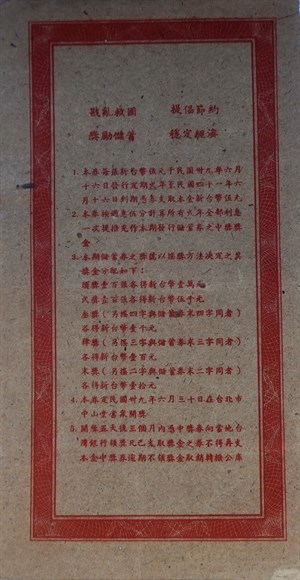 戡亂救國　提倡節約
獎勵儲蓄　穩定經濟
1. 本券每張新台幣伍元于民國卅九年六月
十六日發行定期貳年至民國四十一年六
月十六日到期憑券支取本金新台幣伍元
2. 本券按週息伍分計算所有貳年全部利息
一次提撥充作本期發行儲蓄券之中獎獎
金
3. 本期儲蓄券之獎號以搖獎方法決定之其
獎金分配如下：
頭獎壹百張各得新台幣壹萬元
貳獎壹百張各得新台幣伍千元
叁獎（另搖四字與儲蓄券末四字同者）
各得新台幣壹千元
肆獎（另搖三字與儲蓄券末三字同者）
各得新台幣壹百元
末獎（另搖二字與儲蓄券末二字同者）
各得新台幣壹拾元
4. 本券定民國卅九年六月三十日在台北市
中山堂當眾開獎
5. 開獎五天後三個月內憑中獎券向當地台
灣銀行領獎凡已支取獎金之券不得再支
本金中獎券逾期不領獎金取銷轉撥公庫